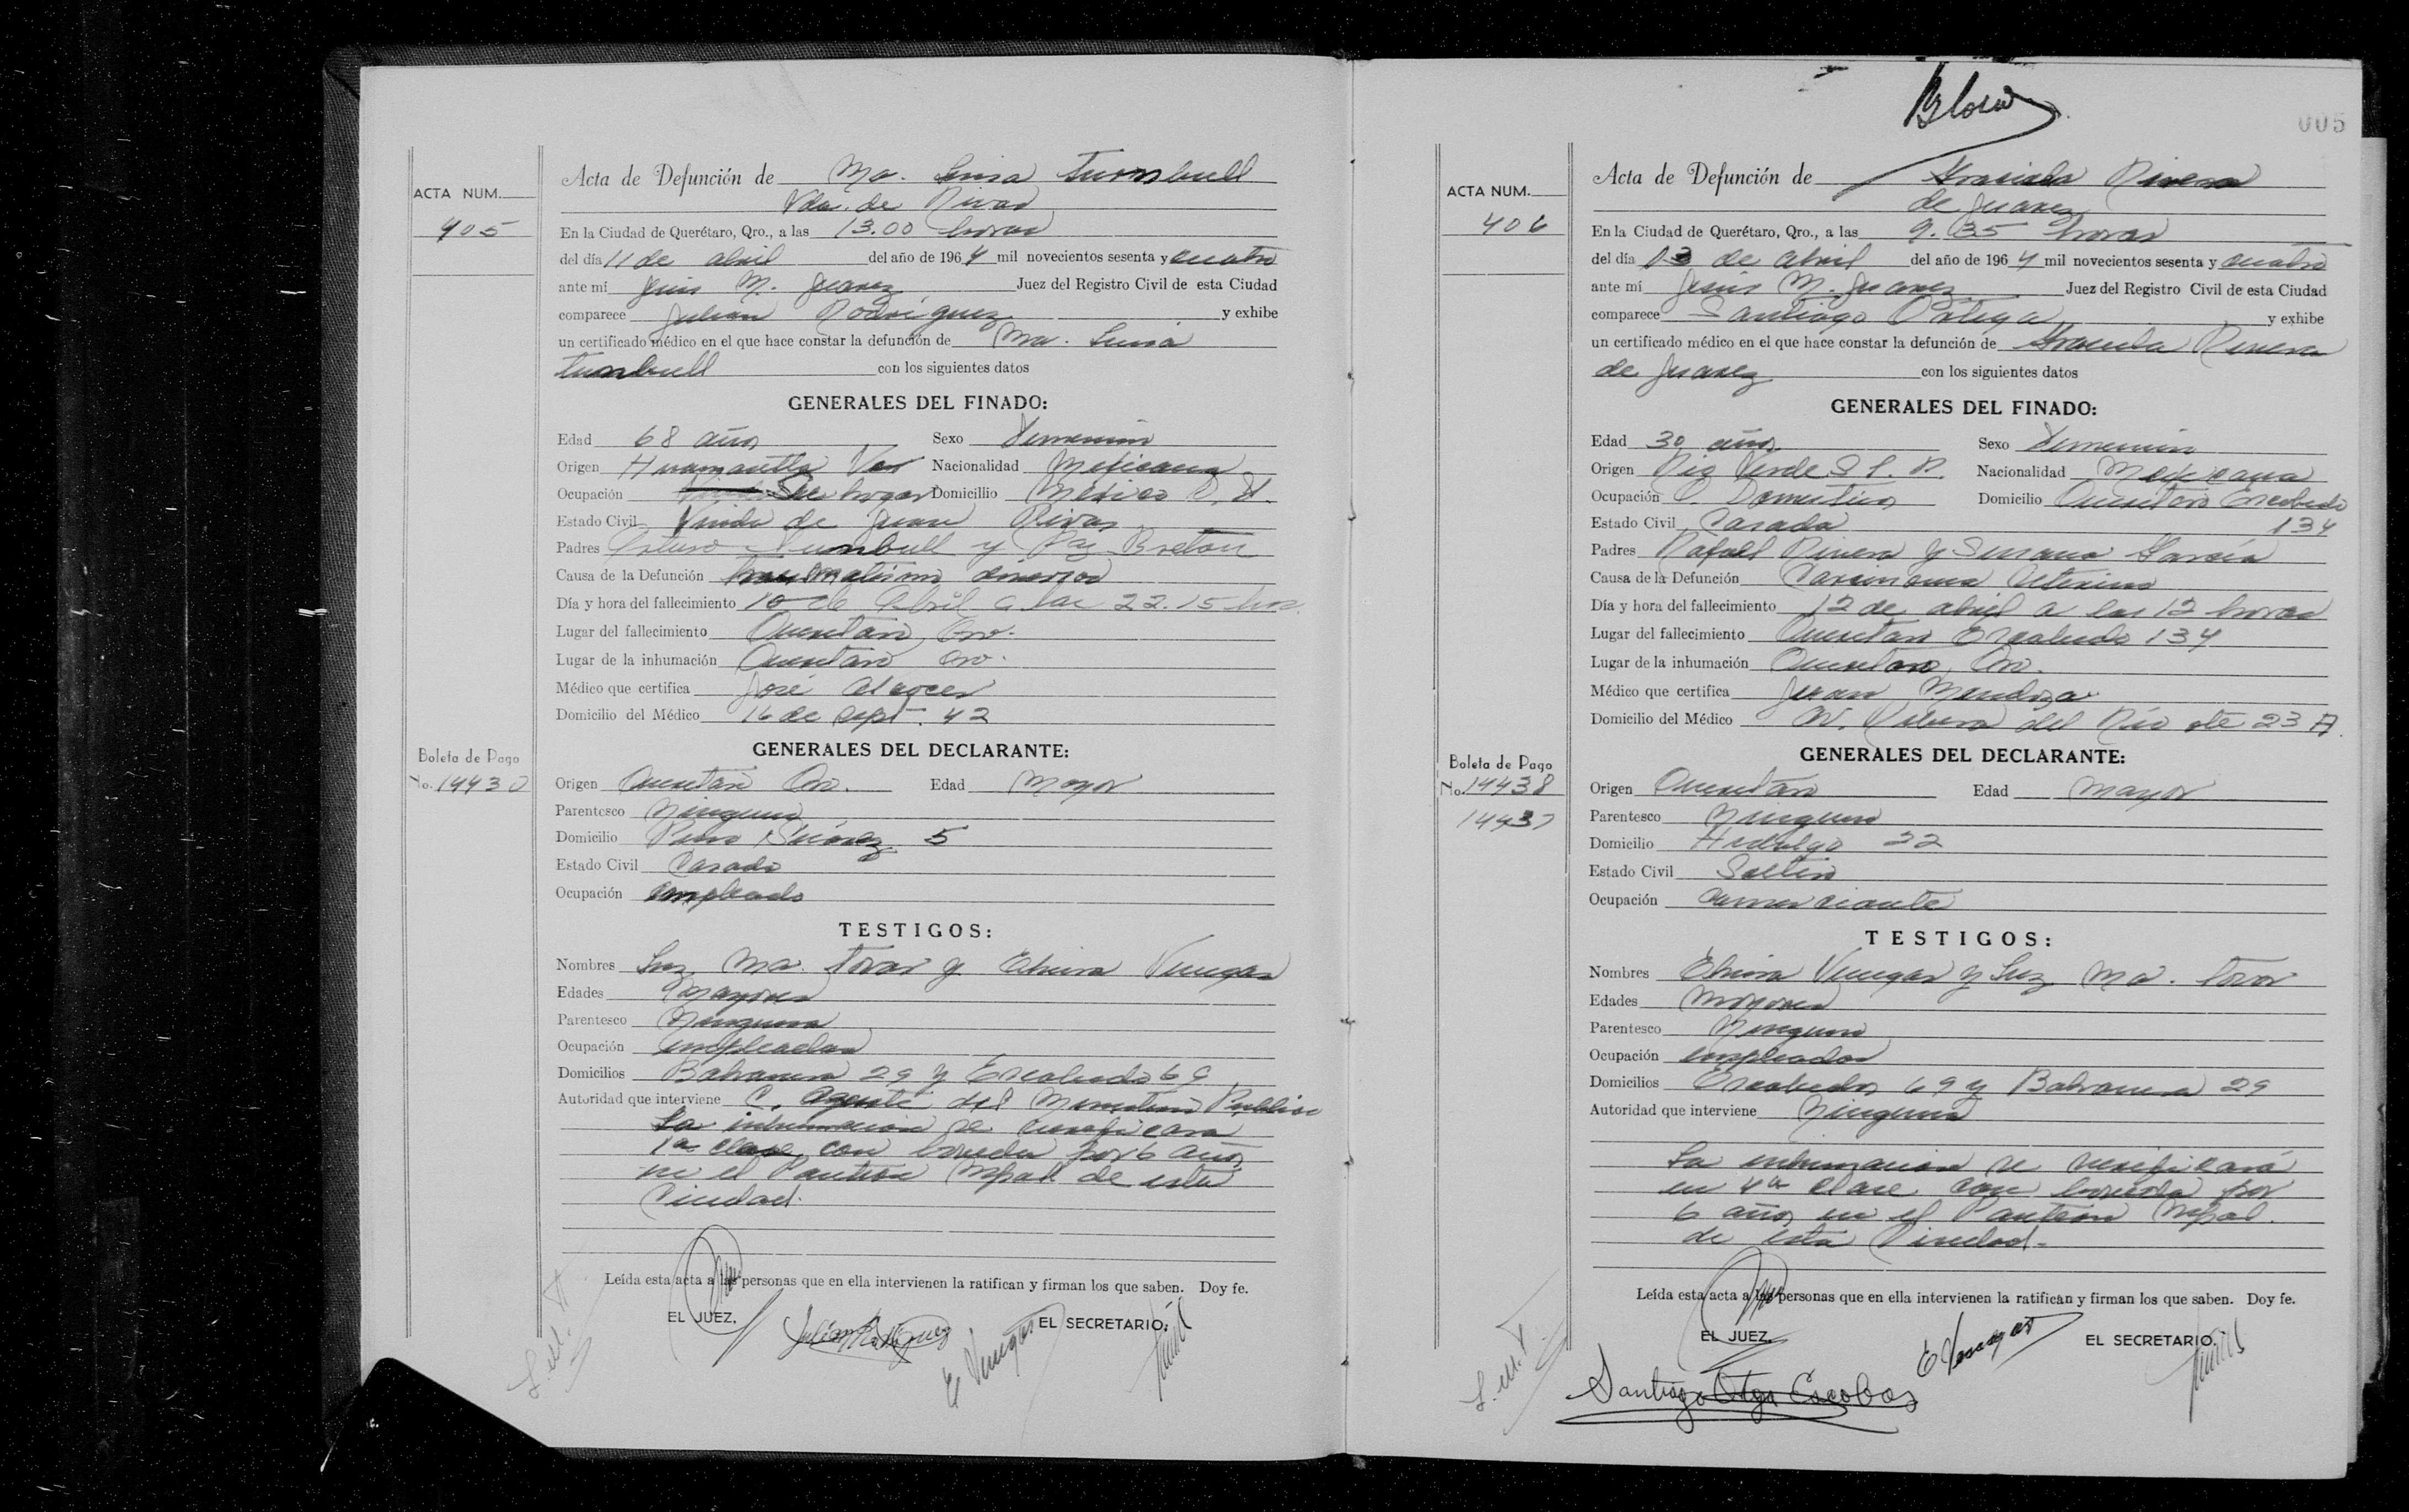 ACTA NUM.
405
Acta de Defunción de Ma. Luisa Turnbull
Vda. de Rivas
En la Ciudad de Querétaro, Qro., a las 13.00 horas
del día 11 de abril del año de 1964 mil novecientos sesenta y cuatro
ante mí Jesús M. Juarez Juez del Registro Civil de esta Ciudad
comparece Julian Rodriguez y exhibe
un certificado médico en el que hace constar la defunción de Ma. Luisa
Turnbull con los siguientes datos
GENERALES DEL FINADO:
Edad 68 años Sexo Femenino
Origen Huamantla Ver Nacionalidad Mexicana
Ocupación Su hogar Domicillio México D. F.
Estado Civil Viuda de Juan Rivas
Padres Arturo Turnbull y Paz Breton
Causa de la Defunción traumatismo diversos
Día y hora del fallecimiento 10 de Abril a las 22.15 hrs.
Lugar del fallecimiento Queretaro, Qro.
Lugar de la inhumación Queretaro Qro.
Médico que certifica José Alcocer
Domicilio del Médico 16 de Sept. 42
GENERALES DEL DECLARANTE:
Boleta de Pago
No. 14430
Origen Queretaro Qro. Edad Mayor
Parentesco Ninguno
Domicilio Pino Suárez 5
Estado Civil Casado
Ocupación Empleado
TESTIGOS:
Nombres Luz Ma. Tovar y Elvira Venegas
Edades Mayores
Parentesco Ninguno
Ocupación empleadas
Domicilios Balvanera 29 y Escobedo 69
Autoridad que interviene C. Agente del Ministerio Publico
La inhumacion se verificara
1a clase, con boveda por 6 años
en el Panteon Mpal. de esta
Ciudad.
Leída esta acta a las personas que en ella intervienen la ratifican y firman los que saben. Doy fe.
EL JUEZ.
Julián Rodríguez
E Venegas
EL SECRETARIO.
L. M. T.
005
ACTA NUM.
406
Acta de Defunción de Graciela Rivera
de Juarez
En la Ciudad de Querétaro, Qro., a las 9.35 horas
del día 13 de abril del año de 1964 mil novecientos sesenta y cuatro
ante mí Jesús M. Juarez Juez del Registro Civil de esta Ciudad
comparece Santiago y exhibe
un certificado médico en el que hace constar la defunción de Graciela Rivera
de Juarez con los siguientes datos
GENERALES DEL FINADO:
Edad 30 años Sexo Femenino
Origen Rio Verde S L. P. Nacionalidad Mexicana
Ocupación Q. Domesticos Domicilio Queretaro Escobedo
134
Estado Civil Casada
Padres Rafael Rivera y Susana García
Causa de la Defunción Carcinoma Uterino
Día y hora del fallecimiento 12 de abril a las 12 horas
Lugar del fallecimiento Queretaro Escobedo 134
Lugar de la inhumación Queretaro, Qro.
Médico que certifica Juan Mendoza
Domicilio del Médico Av. Ribera del Río ote 23 A.
GENERALES DEL DECLARANTE:
Boleta de Pago
No. 14438
14437
Origen Queretaro Edad mayor
Parentesco Ninguno
Domicilio Hidalgo 22
Estado Civil Soltero
Ocupación comerciante
TESTIGOS:
Nombres Elvira Venegas y Luz Ma. Tovar
Edades Mayores
Parentesco Ninguno
Ocupación empleadas
Domicilios Escobedo 69 y Balvanera 29
Autoridad que interviene Ninguna
La inhumacion se verificará
en 4a clase con boveda por
6 años en el Panteon Mpal.
de esta Ciudad.
Leída esta acta a las personas que en ella intervienen la ratifican y firman los que saben. Doy fe.
EL JUEZ.
E Venegas
EL SECRETARIO.
L. M. T.
Santiago Escobar